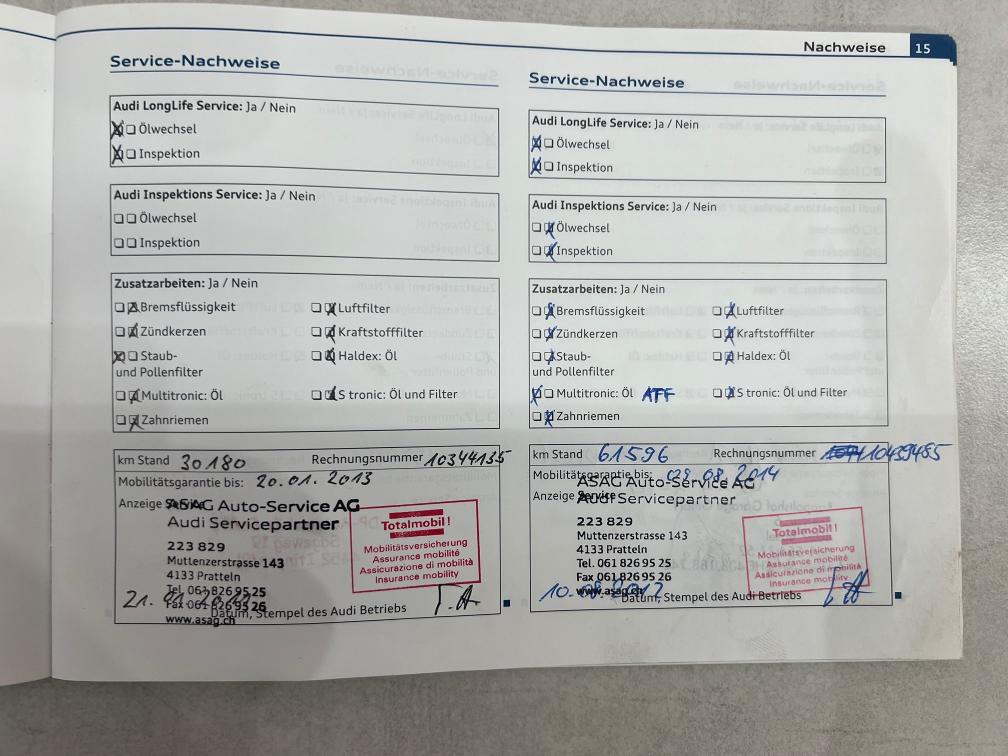 Nachweise 15
Service-Nachweise
Audi LongLife Service: Ja / Nein
Ölwechsel
Inspektion
Audi Inspektions Service: Ja / Nein
Ölwechsel
Inspektion
Zusatzarbeiten: Ja / Nein
Bremsflüssigkeit Luftfilter
Zündkerzen Kraftstofffilter
Staub- Haldex: Öl
und Pollenfilter
Multitronic: Öl S tronic: Öl und Filter
Zahnriemen
km Stand 30180 Rechnungsnummer 10344135
Mobilitätsgarantie bis: 20.01.2013
Anzeige Service
ASAG Auto-Service AG
Audi Servicepartner
223 829
Muttenzerstrasse 143
4133 Pratteln
Tel. 061 826 95 25
Fax 061 826 95 26
www.asag.ch
Totalmobil!
Mobilitätsversicherung
Assurance mobilité
Assicurazione di mobilità
Insurance mobility
21.
Datum, Stempel des Audi Betriebs
Service-Nachweise
Audi LongLife Service: Ja / Nein
Ölwechsel
Inspektion
Audi Inspektions Service: Ja / Nein
Ölwechsel
Inspektion
Zusatzarbeiten: Ja / Nein
Bremsflüssigkeit Luftfilter
Zündkerzen Kraftstofffilter
Staub- Haldex: Öl
und Pollenfilter
Multitronic: Öl ATF S tronic: Öl und Filter
Zahnriemen
km Stand 61596 Rechnungsnummer 10439485
Mobilitätsgarantie bis: 08.2014
Anzeige Service
ASAG Auto-Service AG
Audi Servicepartner
223 829
Muttenzerstrasse 143
4133 Pratteln
Tel. 061 826 95 25
Fax 061 826 95 26
www.asag.ch
Totalmobil!
Mobilitätsversicherung
Assurance mobilité
Assicurazione di mobilità
Insurance mobility
10.
Datum, Stempel des Audi Betriebs